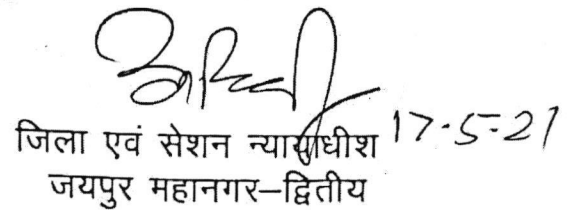 जिला एवं सेशन न्यायाधीश 17-5-21
जयपुर महानगर–द्वितीय